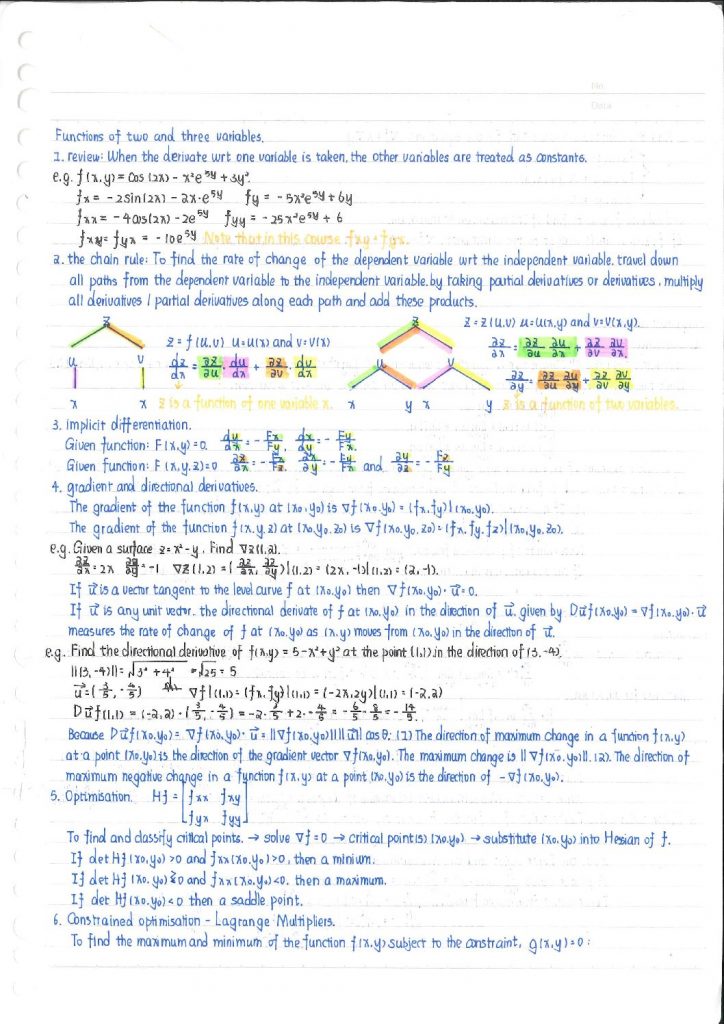 No.
Date
Functions of two and three variables.
1. review: When the derivate wrt one variable is taken, the other variables are treated as constants.
e.g. f(x,y) = cos(2x) - x²e^5y + 3y².
fx = -2sin(2x) - 2x·e^5y   fy = -5x²e^5y + 6y
fxx = -4cos(2x) - 2e^5y   fyy = -25x²e^5y + 6
fxy = fyx = -10e^5y   Note that in this course fxy = fyx.
2. the chain rule: To find the rate of change of the dependent variable wrt the independent variable. travel down
all paths from the dependent variable to the independent variable. by taking partial derivatives or derivatives, multiply
all derivatives / partial derivatives along each path and add these products.
z
u v
x x
z = f(u,v) u=u(x) and v=v(x)
dz/dx = ∂z/∂u · du/dx + ∂z/∂v · dv/dx
z is a function of one variable x.
z
u v
x y x y
z = z(u,v) u=u(x,y) and v=v(x,y).
∂z/∂x = ∂z/∂u ∂u/∂x + ∂z/∂v ∂v/∂x.
∂z/∂y = ∂z/∂u ∂u/∂y + ∂z/∂v ∂v/∂y
z is a function of two variables.
3. implicit differentiation.
Given function: F(x,y)=0. dy/dx = - Fx/Fy, dx/dy = - Fy/Fx
Given function: F(x,y,z)=0 ∂z/∂x = - Fx/Fz, ∂x/∂y = - Fy/Fx and ∂y/∂z = - Fz/Fy
4. gradient and directional derivatives.
The gradient of the function f(x,y) at (x0,y0) is ∇f(x0,y0) = (fx,fy)|(x0,y0).
The gradient of the function f(x,y,z) at (x0,y0,z0) is ∇f(x0,y0,z0) = (fx,fy,fz)|(x0,y0,z0).
e.g. Given a surface z = x² - y. Find ∇z(1,2).
∂z/∂x = 2x ∂z/∂y = -1 ∇z(1,2) = (∂z/∂x, ∂z/∂y)|(1,2) = (2x,-1)|(1,2) = (2,-1).
If u⃗ is a vector tangent to the level curve f at (x0,y0) then ∇f(x0,y0)·u⃗ = 0.
If u⃗ is any unit vector. the directional derivate of f at (x0,y0) in the direction of u⃗. given by Du⃗f(x0,y0) = ∇f(x0,y0)·u⃗
measures the rate of change of f at (x0,y0) as (x,y) moves from (x0,y0) in the direction of u⃗.
e.g. Find the directional derivative of f(x,y) = 5 - x² + y² at the point (1,1) in the direction of (3,-4).
||(3,-4)|| = √3² + 4² = √25 = 5
u⃗ = (3/5, -4/5) ∇f|(1,1) = (fx,fy)|(1,1) = (-2x,2y)|(1,1) = (-2,2)
Du⃗f(1,1) = (-2,2)·(3/5, -4/5) = -2·3/5 + 2·-4/5 = -6/5 - 8/5 = -14/5.
Because Du⃗f(x0,y0) = ∇f(x0,y0)·u⃗ = ||∇f(x0,y0)|| ||u⃗|| cosθ. (1) The direction of maximum change in a function f(x,y)
at a point (x0,y0) is the direction of the gradient vector ∇f(x0,y0). The maximum change is ||∇f(x0,y0)||. (2). The direction of
maximum negative change in a function f(x,y) at a point (x0,y0) is the direction of -∇f(x0,y0).
5. Optimisation. Hf = [fxx fxy
fyx fyy]
To find and classify critical points. → solve ∇f = 0 → critical point(s) (x0,y0) → substitute (x0,y0) into Hesian of f.
If det Hf(x0,y0) >0 and fxx(x0,y0)>0, then a minium.
If det Hf(x0,y0) >0 and fxx(x0,y0)<0. then a maximum.
If det Hf(x0,y0) <0 then a saddle point.
6. Constrained optimisation - Lagrange Multipliers.
To find the maximum and minimum of the function f(x,y) subject to the constraint, g(x,y)=0: